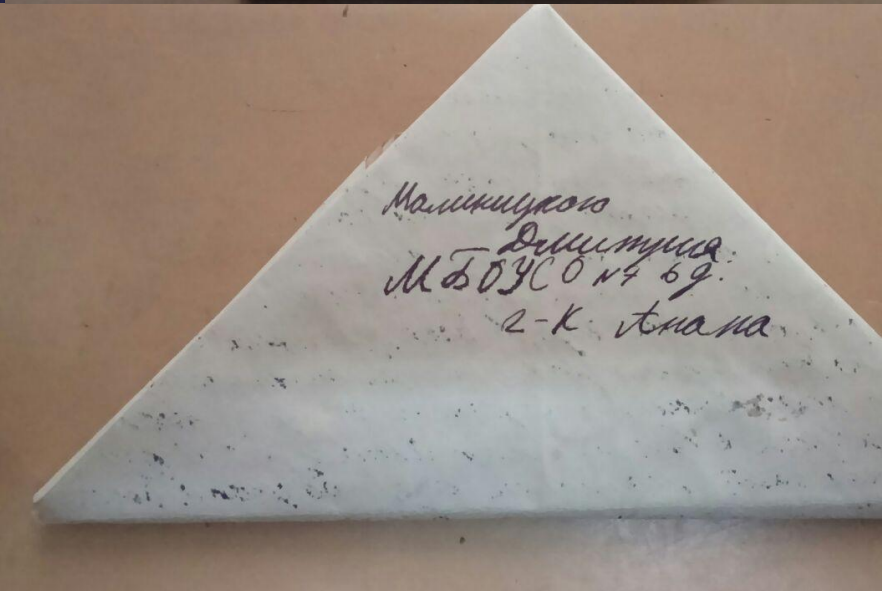 Малиницкого
Дмитрия.
МБОУСО №7 6д.
г-к Анапа